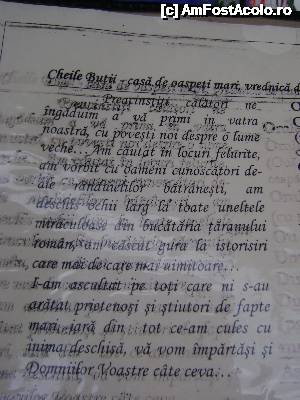 (c) AmFostAcolo.ro
Cheile Butii - casă de oaspeți mari, vrednică d
Preacinstiți călători ne
îngăduim a vă primi în vatra
noastră, cu povești noi despre o lume
veche... Am căutat în locuri felurite,
am vorbit cu oameni cunoscători de-
ale rânduielilor bătrânești, am
deschis ochii larg la toate uneltele
miraculoase din bucătăria țăranului
român, am căscat gura la istorisiri
care mai de care mai uimitoare...
I-am ascultat pe toți care ni s-au
arătat prietenoși și știutori de fapte
mari, iară din tot ce-am cules cu
inima deschisă, vă vom împărtăși și
Domniilor Voastre câte ceva...
(c) AmFostAcolo.ro